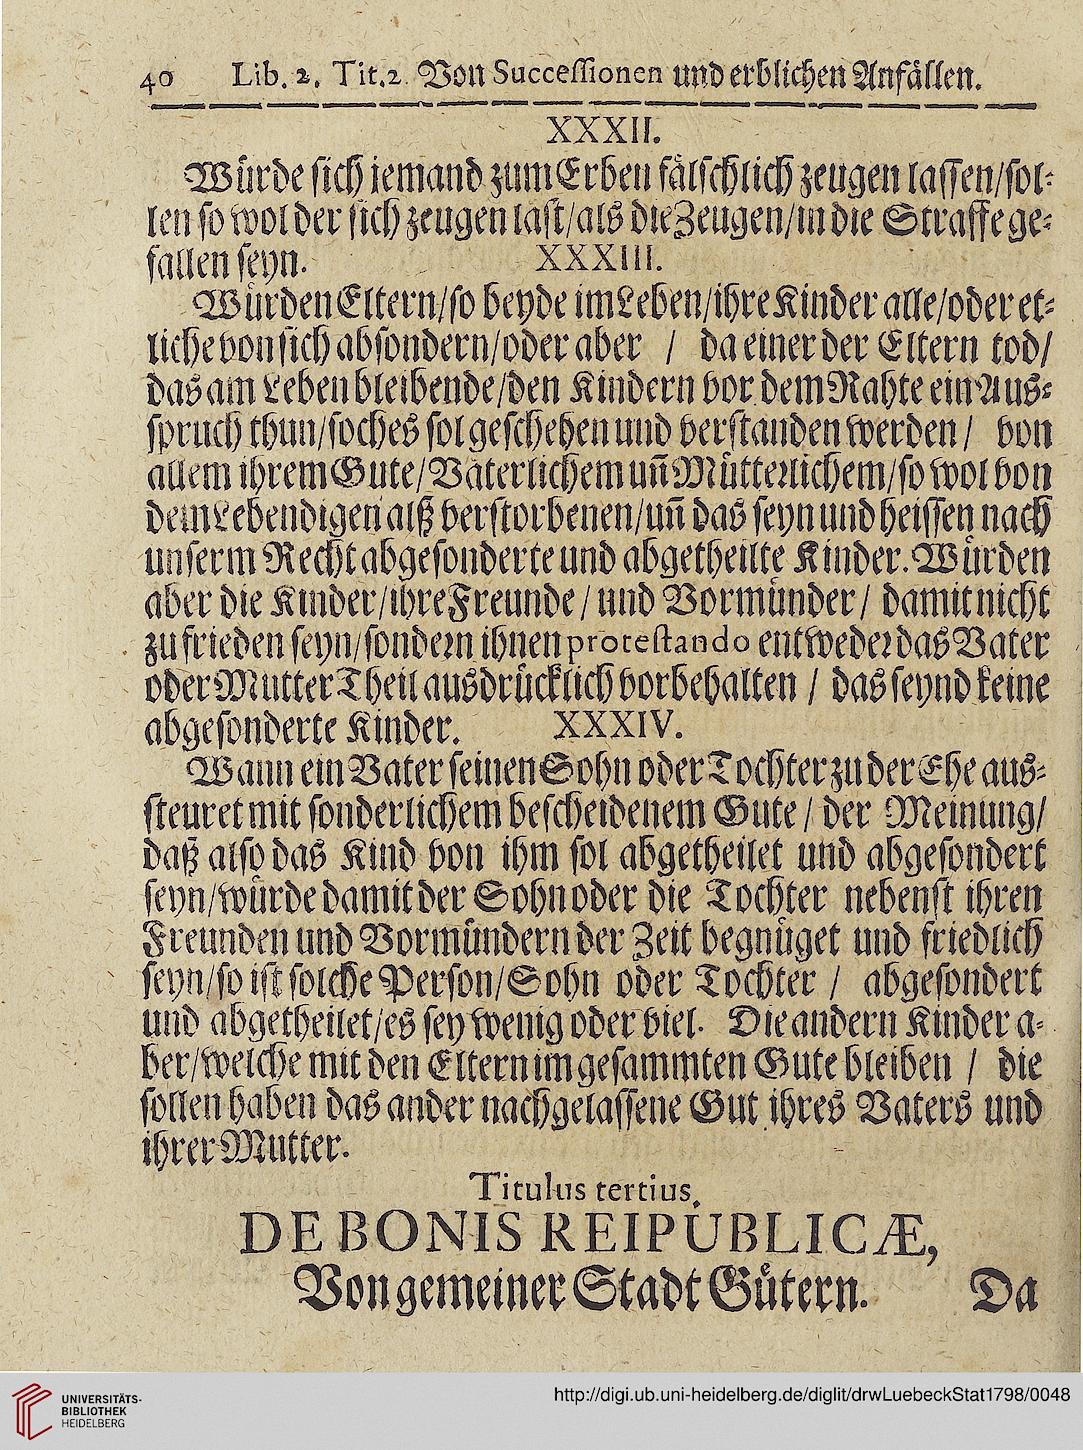 40 Lib. 2. Tit. 2. Von Successionen und erblichen Anfällen.
XXXII.
Würde sich jemand zum Erben fälschlich zeugen lassen/sol-
len so wol der sich zeugen last/als die Zeugen/in die Straffe ge-
fallen seyn. XXXIII.
Würden Eltern/so beyde im Leben/ihre Kinder alle/oder et-
liche von sich absondern/oder aber / da einer der Eltern tod/
das am Leben bleibende/den Kindern vor dem Rahte ein Aus-
spruch thun/soches sol geschehen und verstanden werden / von
allem ihrem Gute/Väterlichem uñ Mütterlichem/so wol von
dem Lebendigen alß verstorbenen/uñ das seyn und heissen nach
unserm Recht abgesonderte und abgetheilte Kinder. Würden
aber die Kinder/ihre Freunde / und Vormünder / damit nicht
zu frieden seyn/sondern ihnen protestando entweder das Vater
oder Mutter Theil ausdrücklich vorbehalten / das seynd keine
abgesonderte Kinder. XXXIV.
Wann ein Vater seinen Sohn oder Tochter zu der Ehe aus-
steuret mit sonderlichem bescheidenem Gute / der Meinung/
daß also das Kind von ihm sol abgetheilet und abgesondert
seyn/würde damit der Sohn oder die Tochter nebenst ihren
Freunden und Vormündern der Zeit begnüget und friedlich
seyn/so ist solche Person/Sohn oder Tochter / abgesondert
und abgetheilet/es sey wenig oder viel. Die andern Kinder a-
ber/welche mit den Eltern im gesammten Gute bleiben / die
sollen haben das ander nachgelassene Gut ihres Vaters und
ihrer Mutter.
Titulus tertius.
DE BONIS REIPUBLICÆ,
Von gemeiner Stadt Gütern. Da
UNIVERSITÄTS-
BIBLIOTHEK
HEIDELBERG
http://digi.ub.uni-heidelberg.de/diglit/drwLuebeckStat1798/0048